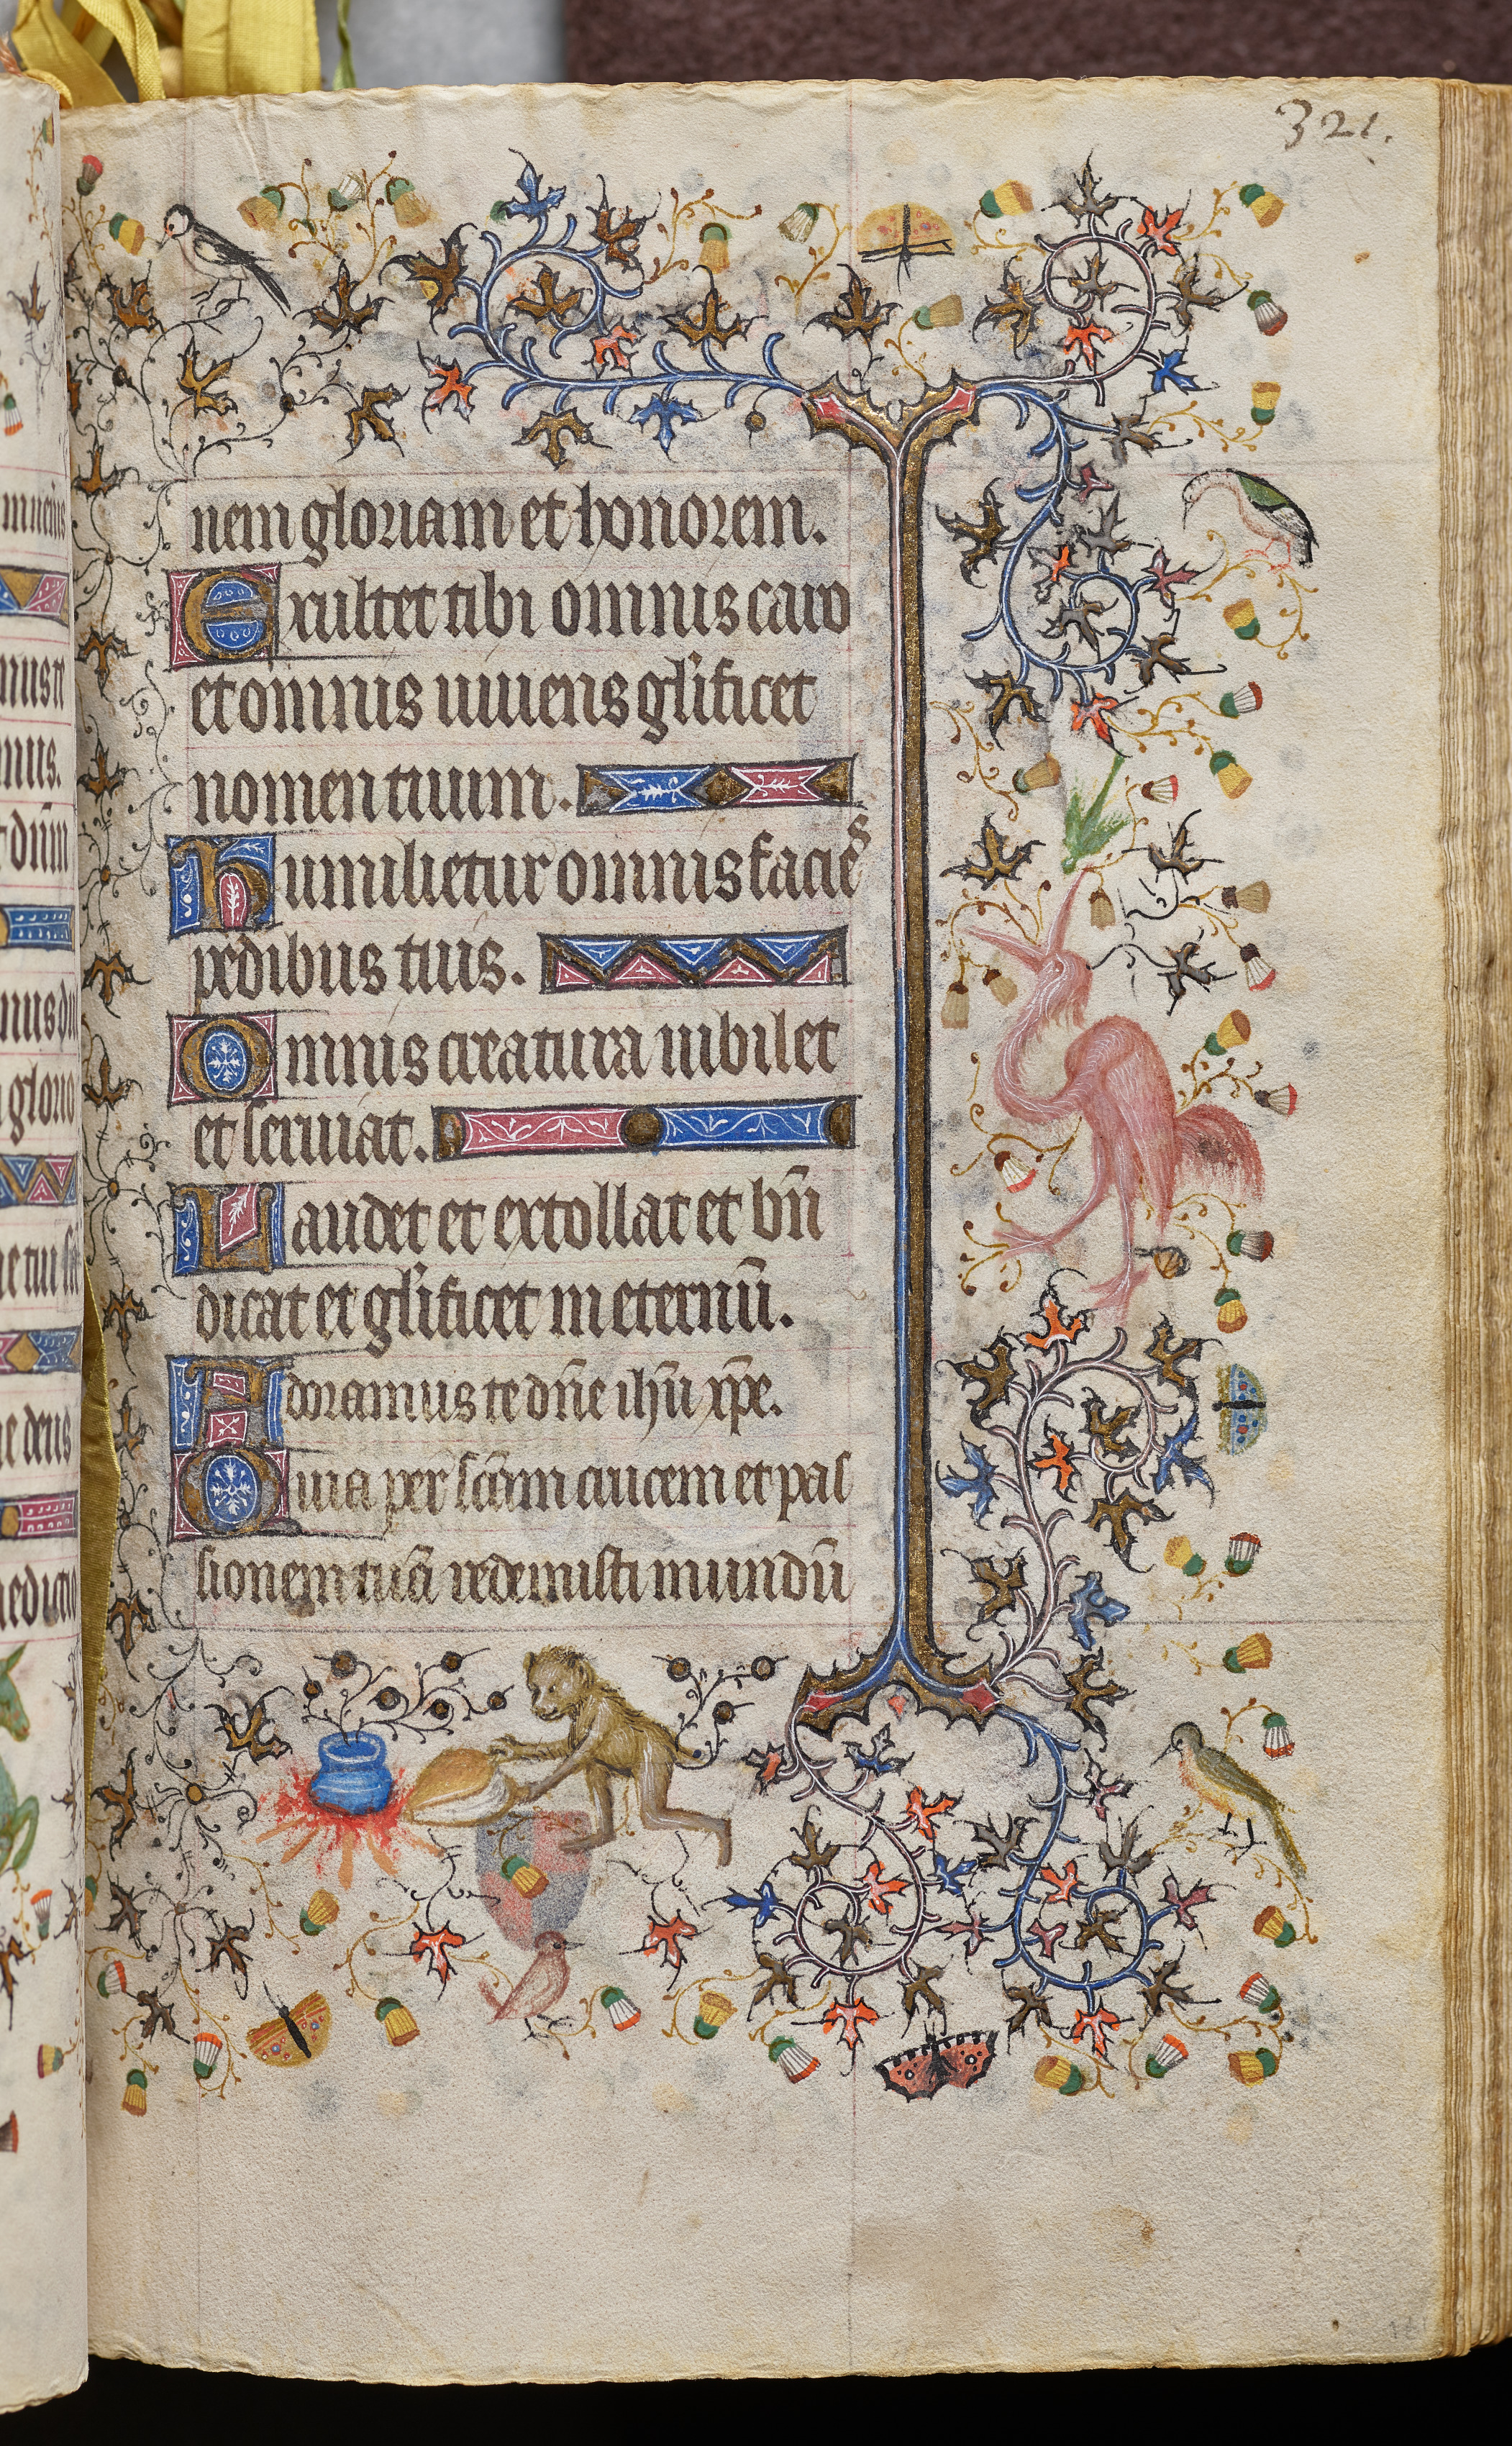 321.
nem gloriam et honorem.
Exultet tibi omnis caro
et omnis uiuens gl'ificet
nomen tuum.
Humilietur omnis facies
pedibus tuis.
Omnis creatura iubilet
et seruiat.
Laudet et extollat et bn̄
dicat et gl'ificet in eternū.
Adoramus te dn̄e ihū xp̄e.
Quia per sc̄am crucem et pas
sionem tuā redemisti mundū